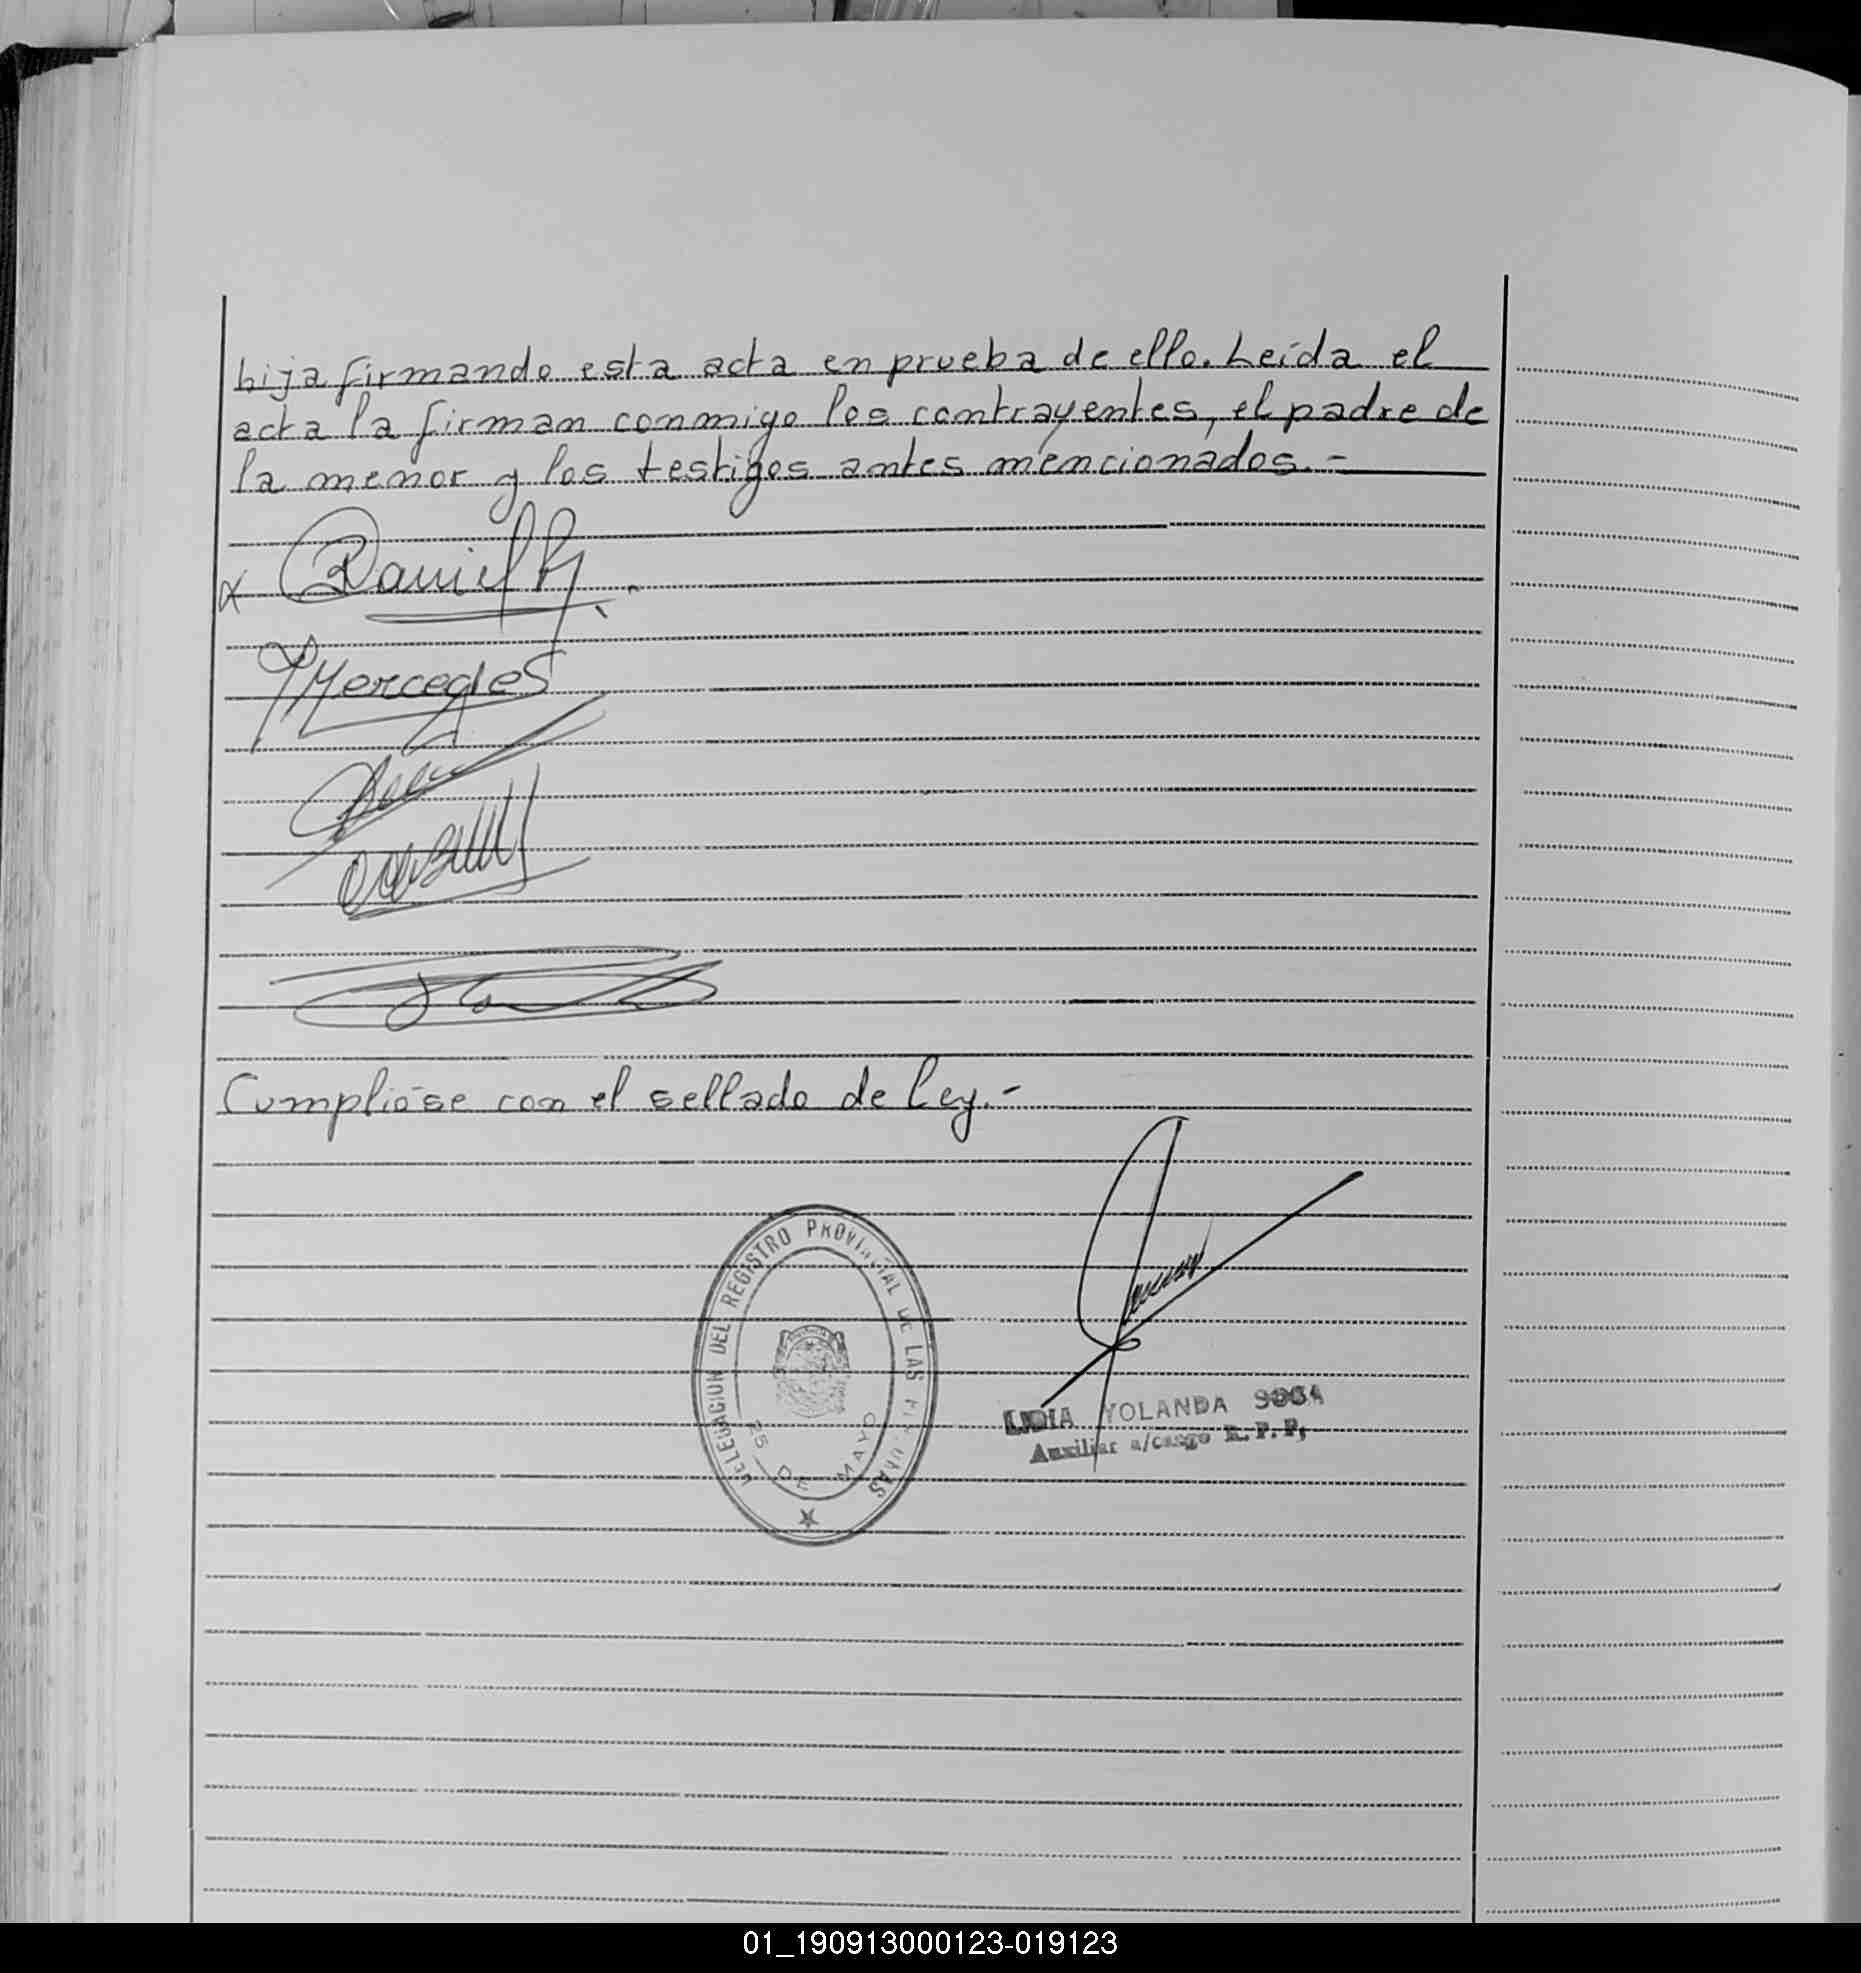 hija firmando esta acta en prueba de ello. Leída el
acta la firman conmigo los contrayentes, el padre de
la menor y los testigos antes mencionados.-
Daniel
Mercedes
Cumplióse con el sellado de Ley.-
DELEGACION DEL REGISTRO PROVINCIAL DE LAS PERSONAS
25 DE MAYO
LIDIA YOLANDA SOSA
Auxiliar a/cargo R.P.P.
01_190913000123-019123